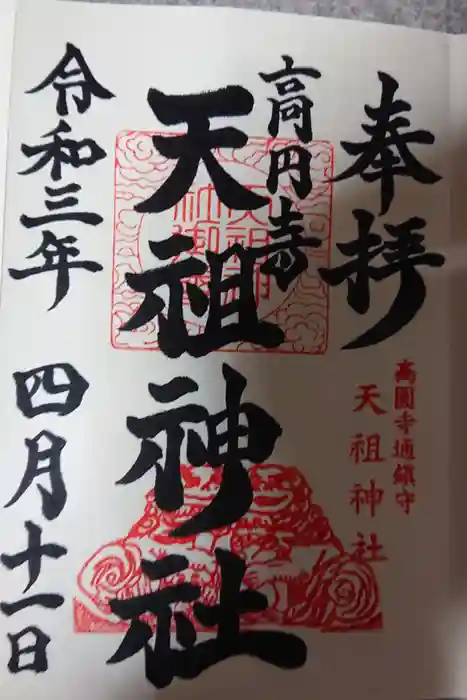 奉拝
高円寺
天祖神社
令和三年
四月十一日
高圓寺通鎮守
天祖神社